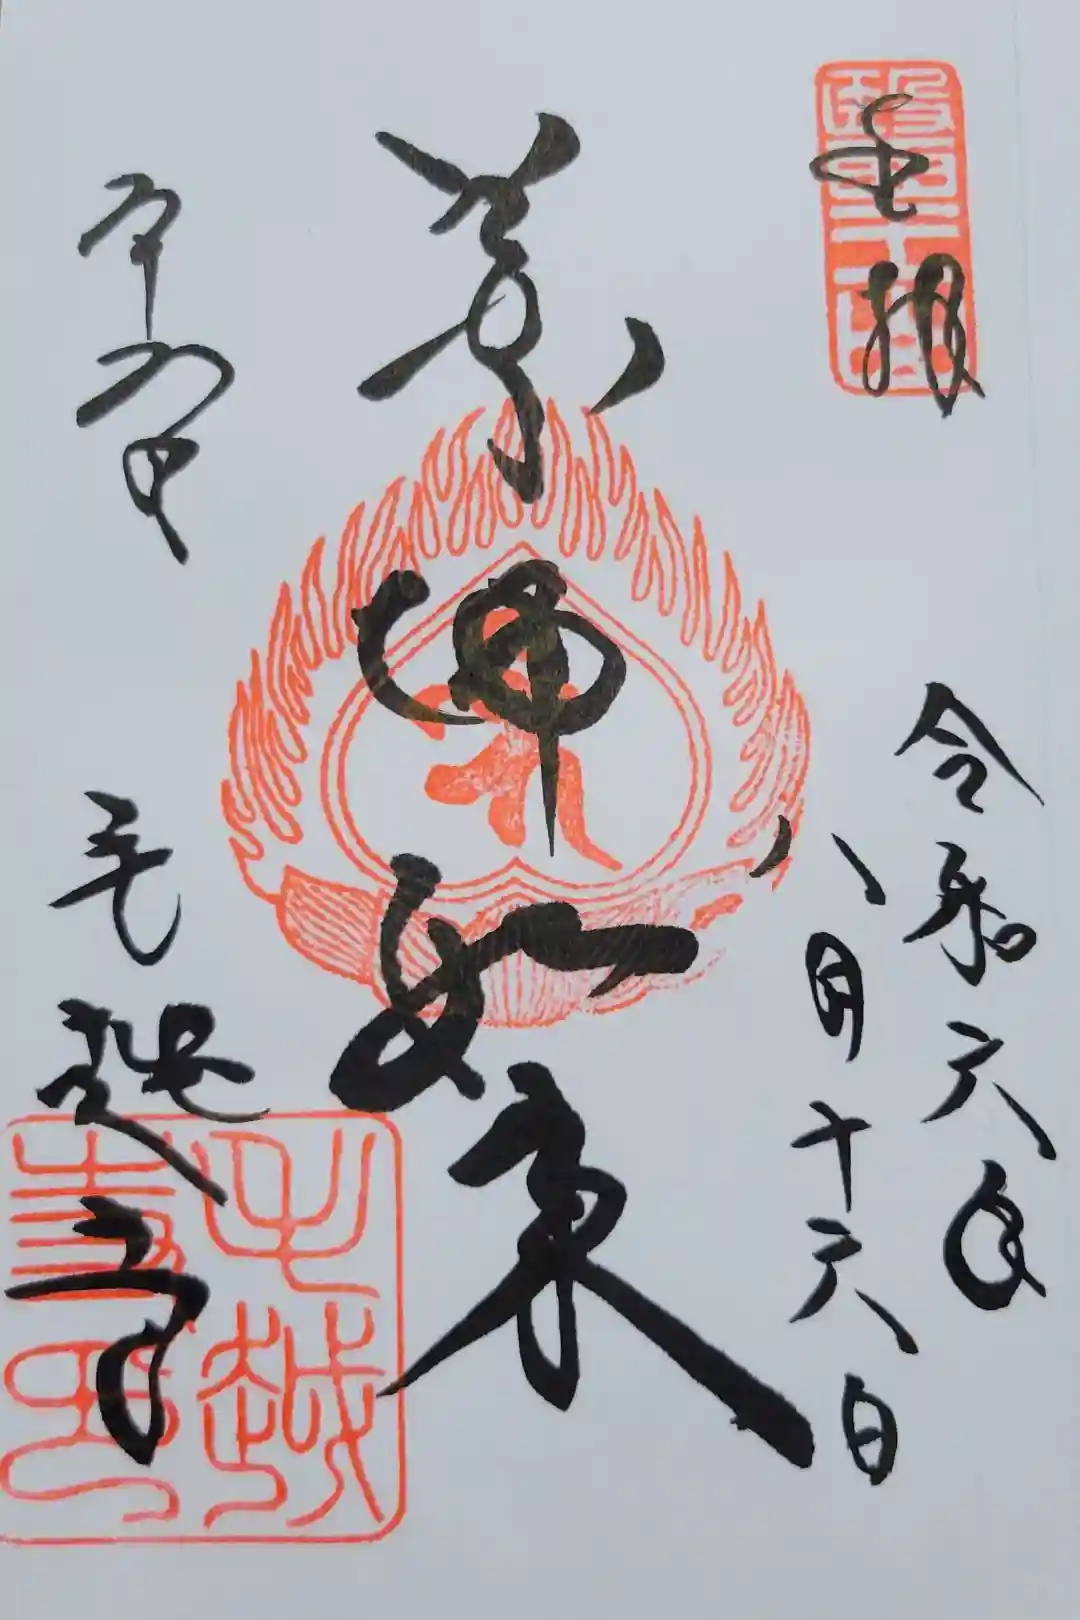 醫王山
奉拝
令和六年
八月十六日
薬師如来
毛越寺
毛越寺印